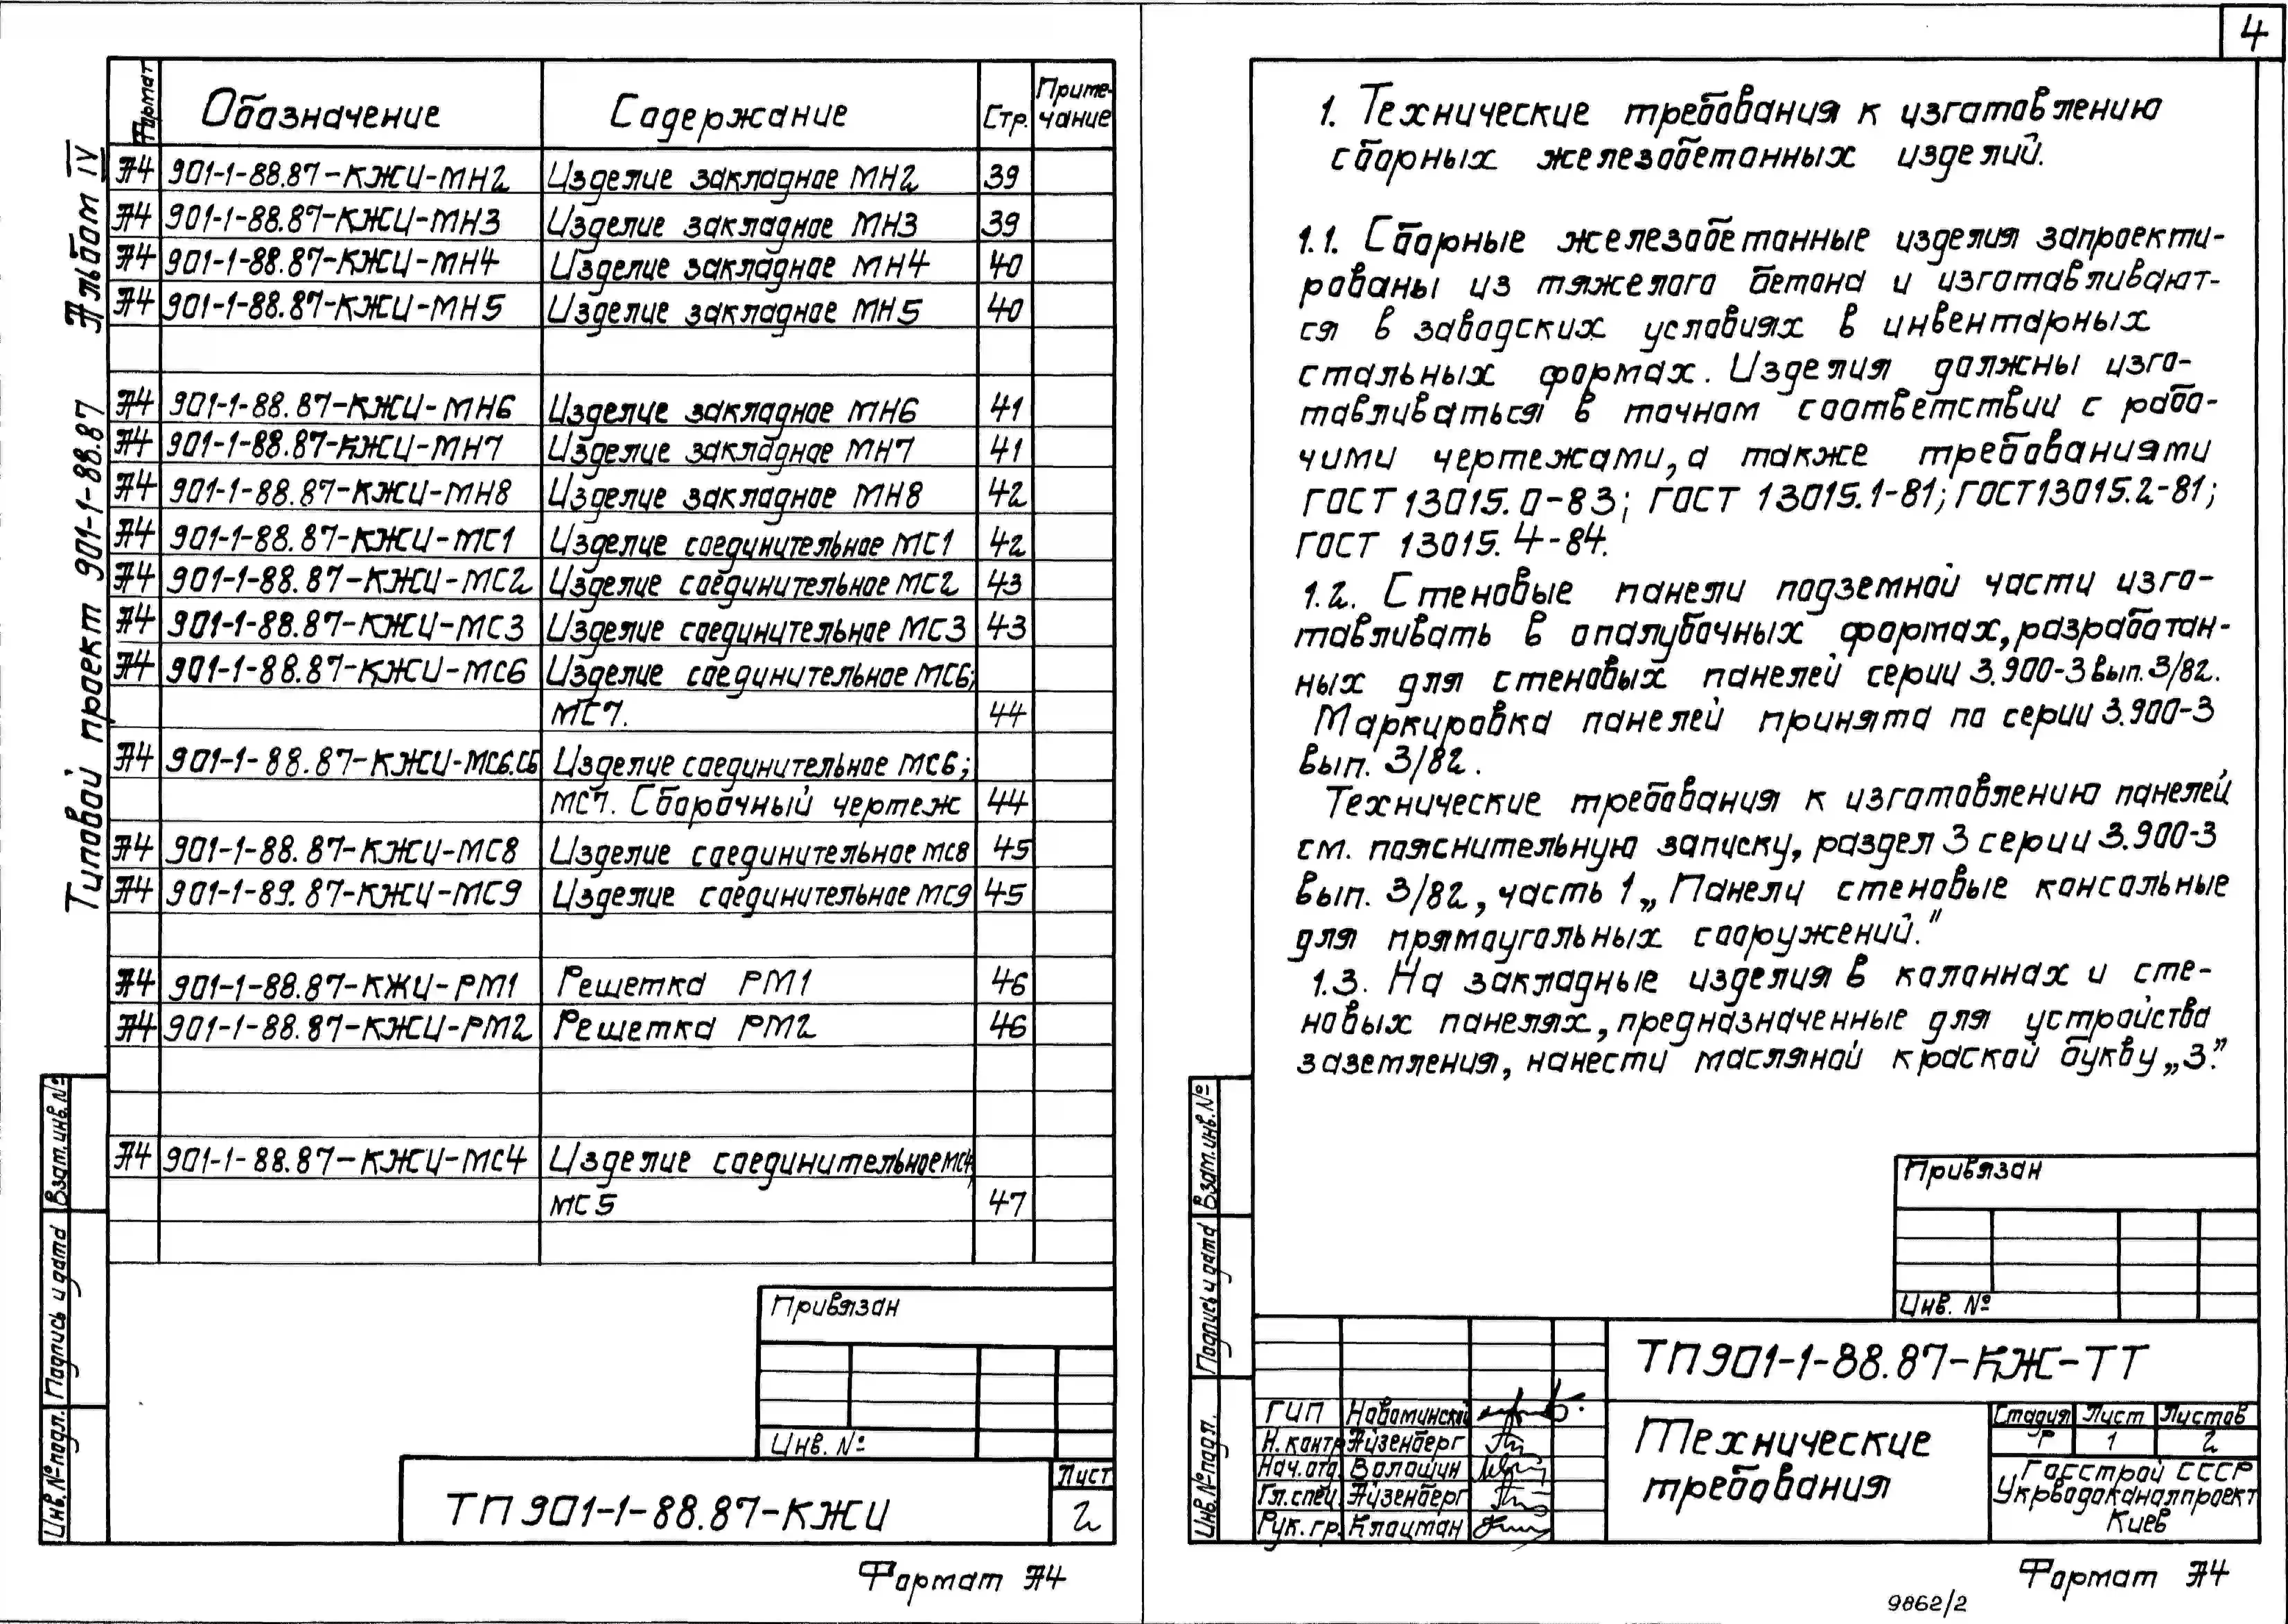 4
Типовой проект 901-1-88.87 Альбом IV
Формат Обозначение Содержание Стр. Приме-
чание
А4 901-1-88.87-КЖИ-МН2 Изделие закладное МН2 39
А4 901-1-88.87-КЖИ-МН3 Изделие закладное МН3 39
А4 901-1-88.87-КЖИ-МН4 Изделие закладное МН4 40
А4 901-1-88.87-КЖИ-МН5 Изделие закладное МН5 40
А4 901-1-88.87-КЖИ-МН6 Изделие закладное МН6 41
А4 901-1-88.87-КЖИ-МН7 Изделие закладное МН7 41
А4 901-1-88.87-КЖИ-МН8 Изделие закладное МН8 42
А4 901-1-88.87-КЖИ-МС1 Изделие соединительное МС1 42
А4 901-1-88.87-КЖИ-МС2 Изделие соединительное МС2 43
А4 901-1-88.87-КЖИ-МС3 Изделие соединительное МС3 43
А4 901-1-88.87-КЖИ-МС6 Изделие соединительное МС6;
МС7. 44
А4 901-1-88.87-КЖИ-МС6.СБ Изделие соединительное МС6;
МС7. Сборочный чертеж 44
А4 901-1-88.87-КЖИ-МС8 Изделие соединительное МС8 45
А4 901-1-89.87-КЖИ-МС9 Изделие соединительное МС9 45
А4 901-1-88.87-КЖИ-РМ1 Решетка РМ1 46
А4 901-1-88.87-КЖИ-РМ2 Решетка РМ2 46
А4 901-1-88.87-КЖИ-МС4 Изделие соединительное МС4,
МС5 47
Взам.инв.№
Подпись и дата
Инв.№ подл.
Привязан
Инв. №
ТП 901-1-88.87-КЖИ
Лист
2
Формат А4
1. Технические требования к изготовлению
сборных железобетонных изделий.
1.1. Сборные железобетонные изделия запроекти-
рованы из тяжелого бетона и изготавливают-
ся в заводских условиях в инвентарных
стальных формах. Изделия должны изго-
тавливаться в точном соответствии с рабо-
чими чертежами, а также требованиями
ГОСТ 13015.0-83; ГОСТ 13015.1-81; ГОСТ13015.2-81;
ГОСТ 13015.4-84.
1.2. Стеновые панели подземной части изго-
тавливать в опалубочных формах, разработан-
ных для стеновых панелей серии 3.900-3 вып. 3/82.
Маркировка панелей принята по серии 3.900-3
вып. 3/82.
Технические требования к изготовлению панелей
см. пояснительную записку, раздел 3 серии 3.900-3
вып. 3/82, часть 1 „Панели стеновые консольные
для прямоугольных сооружений."
1.3. На закладные изделия в колоннах и сте-
новых панелях, предназначенные для устройства
заземления, нанести масляной краской букву „З."
Взам.инв.№
Подпись и дата
Инв.№ подл.
Привязан
Инв. №
ТП901-1-88.87-КЖ-ТТ
ГИП Новоминский
Н.контр Айзенберг
Нач.отд. Волошин
Гл.спец. Айзенберг
Рук.гр. Клоцман
Технические
требования
Стадия Лист Листов
Р 1 2
Госстрой СССР
Укрводоканалпроект
Киев
Формат А4
9862/2